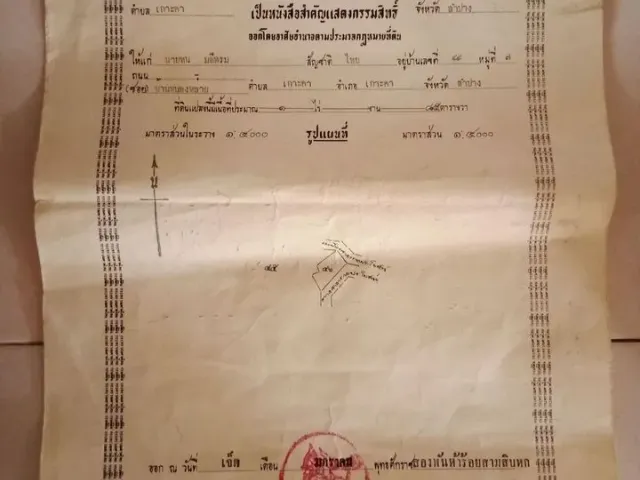 ตำบล เกาะคา จังหวัด ลำปาง
เป็นหนังสือสำคัญแสดงกรรมสิทธิ์
ออกโดยอาศัยอำนาจตามประมวลกฎหมายที่ดิน
ให้แก่ นาย สัญชาติ ไทย อยู่บ้านเลขที่ หมู่ที่
ถนน
(ซอย) ตำบล เกาะคา อำเภอ เกาะคา จังหวัด ลำปาง
ที่ดินแปลงนี้มีเนื้อที่ประมาณ ๑ ไร่ - งาน ตารางวา
มาตราส่วนในระวาง ๑:๔๐๐๐ รูปแผนที่ มาตราส่วน ๑:๔๐๐๐
น
ออก ณ วันที่ เจ็ด เดือน มกราคม พุทธศักราช สองพันห้าร้อยสามสิบหก